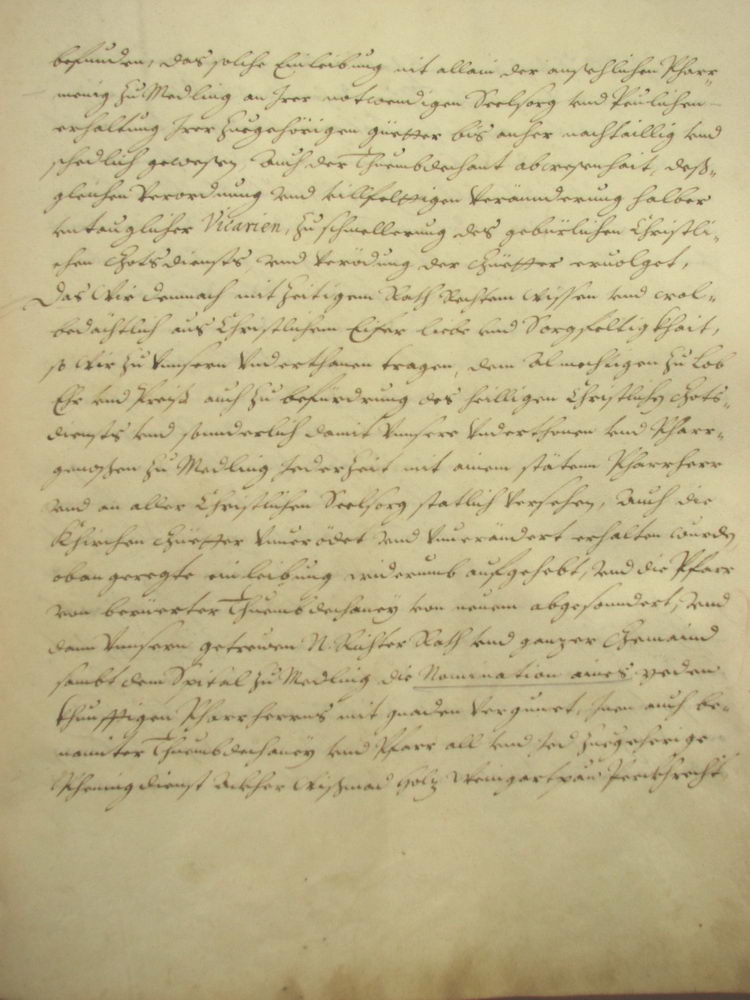 befunden, das solche Einleibung nit allain der ansehlichen Pharr-
menig zu Medling an Irer notwendigen Seelsorg vnd Peulichen
erhaltung Irer zuegehörigen güetter bis anher nachtaillig vnd
schedlich gewesen, auch der Thuembdechant abwesenhait, deß-
gleichen Verordnung vnd villfeltigen Veränderung halber
vntauglicher Vicarien, zu schmellerung des gebürlichen Christli-
chen Gotsdiensts vnd Verödung der Güetter ervolget,
Das Wir demnach mit zeitigem Rath Rechtem Wissen vnd wol-
bedächtlich aus Christlichem Eifer liebe vnd Sorgfeltigkhait,
so Wir zu Vnnsern Vnderthanen tragen, dem Almechtigen zu Lob
Ehr vnd Preiß auch zu befürdrung des heilligen Christlichen Gots-
diensts vnd sonnderlich damit Vnnsere Vnderthonen vnd Pfarr-
genossen zu Medling Jederzeit mit ainem stäten Pharrherr
vnd an aller Christlichen Seelsorg statlich versehen, auch die
Khirchen Güetter Vnuerödet vnd Vnuerändert erhalten wurden,
oban geregte einleibung widerumb aufgehebt, vnd die Pfarr
von berüerter Thuembdechaney von neuem abgesonndert, vnd
dann Vnnsern getrewen N. Richter Rath vnd ganzer Gemaind
sambt dem Spital zu Medling die Nomination aines yeden
khunfftigen Pharrherrns mit gnaden Vergunet, Inen auch be-
nannter Thuembdechaney vnd Pfarr all vnd Jed zuegehörige
dienst Ackher Wißmad Holz Weingartpau Perkhrecht